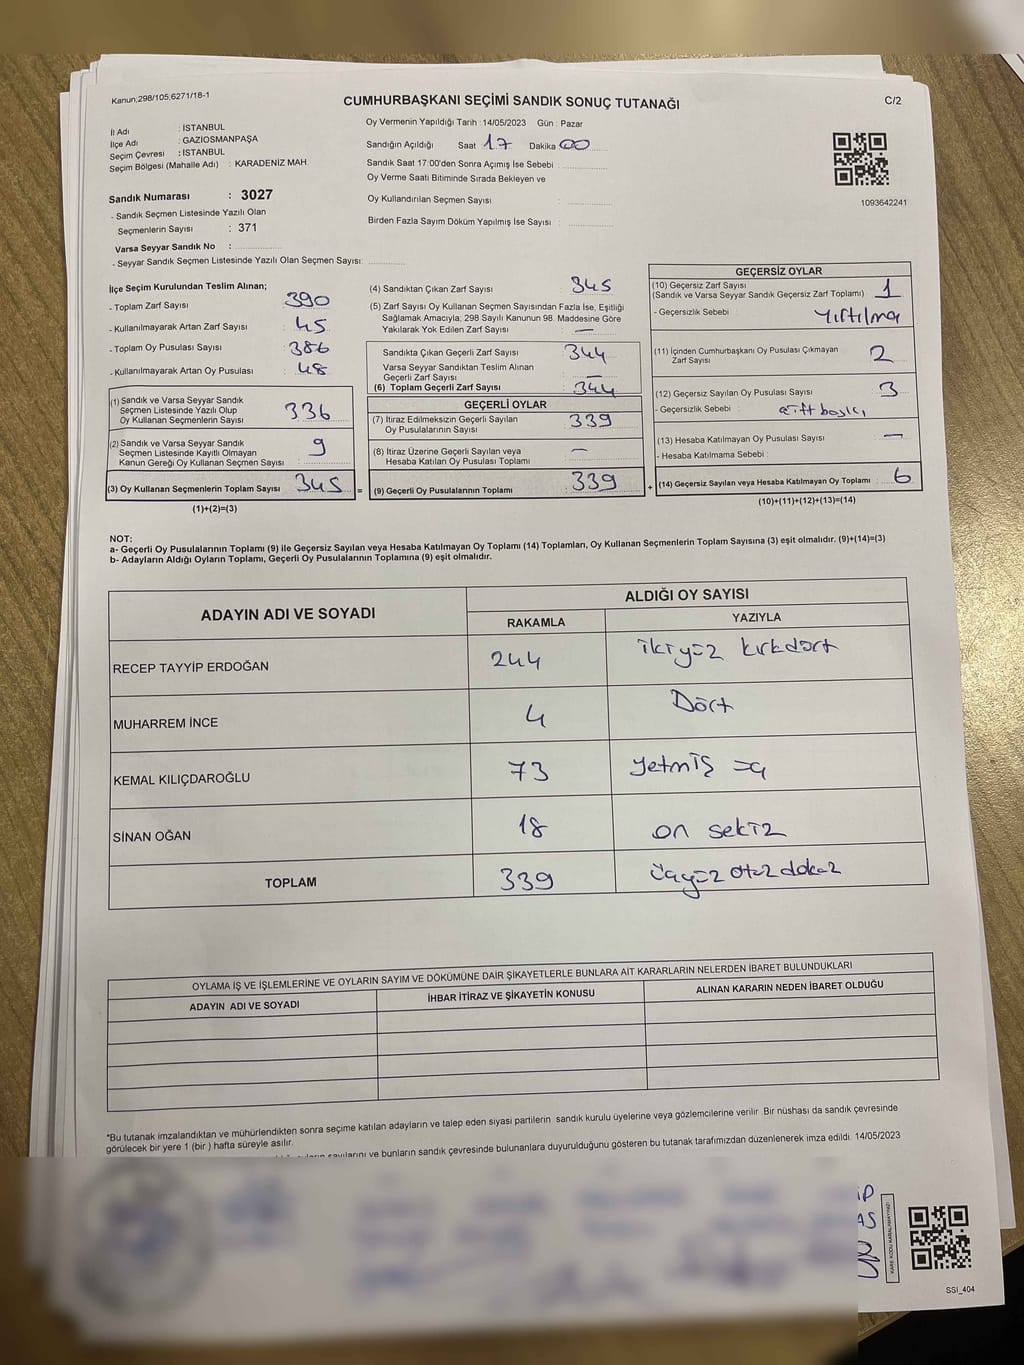 Kanun:298/105,6271/18-1
CUMHURBAŞKANI SEÇİMİ SANDIK SONUÇ TUTANAĞI
C/2
İl Adı : İSTANBUL
İlçe Adı : GAZİOSMANPAŞA
Seçim Çevresi : İSTANBUL
Seçim Bölgesi (Mahalle Adı) : KARADENİZ MAH.
Oy Vermenin Yapıldığı Tarih :14/05/2023 Gün : Pazar
Sandığın Açıldığı Saat 17 Dakika 00
Sandık Saat 17:00'den Sonra Açımış İse Sebebi :
Oy Verme Saati Bitiminde Sırada Bekleyen ve
Oy Kullandırılan Seçmen Sayısı :
Birden Fazla Sayım Döküm Yapılmış İse Sayısı :
1093642241
Sandık Numarası : 3027
- Sandık Seçmen Listesinde Yazılı Olan
Seçmenlerin Sayısı : 371
Varsa Seyyar Sandık No :
- Seyyar Sandık Seçmen Listesinde Yazılı Olan Seçmen Sayısı:
İlçe Seçim Kurulundan Teslim Alınan;
- Toplam Zarf Sayısı : 390
- Kullanılmayarak Artan Zarf Sayısı : 45
- Toplam Oy Pusulası Sayısı : 386
- Kullanılmayarak Artan Oy Pusulası : 48
(1) Sandık ve Varsa Seyyar Sandık
Seçmen Listesinde Yazılı Olup
Oy Kullanan Seçmenlerin Sayısı : 336
(2) Sandık ve Varsa Seyyar Sandık
Seçmen Listesinde Kayıtlı Olmayan
Kanun Gereği Oy Kullanan Seçmen Sayısı : 9
(3) Oy Kullanan Seçmenlerin Toplam Sayısı : 345 =
(1)+(2)=(3)
(4) Sandıktan Çıkan Zarf Sayısı : 345
(5) Zarf Sayısı Oy Kullanan Seçmen Sayısından Fazla İse, Eşitliği
Sağlamak Amacıyla; 298 Sayılı Kanunun 98. Maddesine Göre
Yakılarak Yok Edilen Zarf Sayısı : —
Sandıkta Çıkan Geçerli Zarf Sayısı : 344
Varsa Seyyar Sandıktan Teslim Alınan
Geçerli Zarf Sayısı : —
(6) Toplam Geçerli Zarf Sayısı : 344
GEÇERLİ OYLAR
(7) İtiraz Edilmeksizin Geçerli Sayılan
Oy Pusulalarının Sayısı : 339
(8) İtiraz Üzerine Geçerli Sayılan veya
Hesaba Katılan Oy Pusulası Toplamı : —
(9) Geçerli Oy Pusulalarının Toplamı : 339 +
GEÇERSİZ OYLAR
(10) Geçersiz Zarf Sayısı
(Sandık ve Varsa Seyyar Sandık Geçersiz Zarf Toplamı) : 1
- Geçersizlik Sebebi : Yırtılma
(11) İçinden Cumhurbaşkanı Oy Pusulası Çıkmayan
Zarf Sayısı : 2
(12) Geçersiz Sayılan Oy Pusulası Sayısı : 3
- Geçersizlik Sebebi : çift baskı
(13) Hesaba Katılmayan Oy Pusulası Sayısı : —
- Hesaba Katılmama Sebebi :
(14) Geçersiz Sayılan veya Hesaba Katılmayan Oy Toplamı : 6
(10)+(11)+(12)+(13)=(14)
NOT:
a- Geçerli Oy Pusulalarının Toplamı (9) ile Geçersiz Sayılan veya Hesaba Katılmayan Oy Toplamı (14) Toplamları, Oy Kullanan Seçmenlerin Toplam Sayısına (3) eşit olmalıdır. (9)+(14)=(3)
b- Adayların Aldığı Oyların Toplamı, Geçerli Oy Pusulalarının Toplamına (9) eşit olmalıdır.
ADAYIN ADI VE SOYADI ALDIĞI OY SAYISI
RAKAMLA YAZIYLA
RECEP TAYYİP ERDOĞAN 244 ikiyüz kırkdört
MUHARREM İNCE 4 Dört
KEMAL KILIÇDAROĞLU 73 Yetmiş üç
SİNAN OĞAN 18 on sekiz
TOPLAM 339 üçyüz otuz dokuz
OYLAMA İŞ VE İŞLEMLERİNE VE OYLARIN SAYIM VE DÖKÜMÜNE DAİR ŞİKAYETLERLE BUNLARA AİT KARARLARIN NELERDEN İBARET BULUNDUKLARI
ADAYIN ADI VE SOYADI İHBAR İTİRAZ VE ŞİKAYETİN KONUSU ALINAN KARARIN NEDEN İBARET OLDUĞU
*Bu tutanak imzalandıktan ve mühürlendikten sonra seçime katılan adayların ve talep eden siyasi partilerin sandık kurulu üyelerine veya gözlemcilerine verilir. Bir nüshası da sandık çevresinde
görülecek bir yere 1 (bir ) hafta süreyle asılır.
sayılarını ve bunların sandık çevresinde bulunanlara duyurulduğunu gösteren bu tutanak tarafımızdan düzenlenerek imza edildi. 14/05/2023
SSI_404